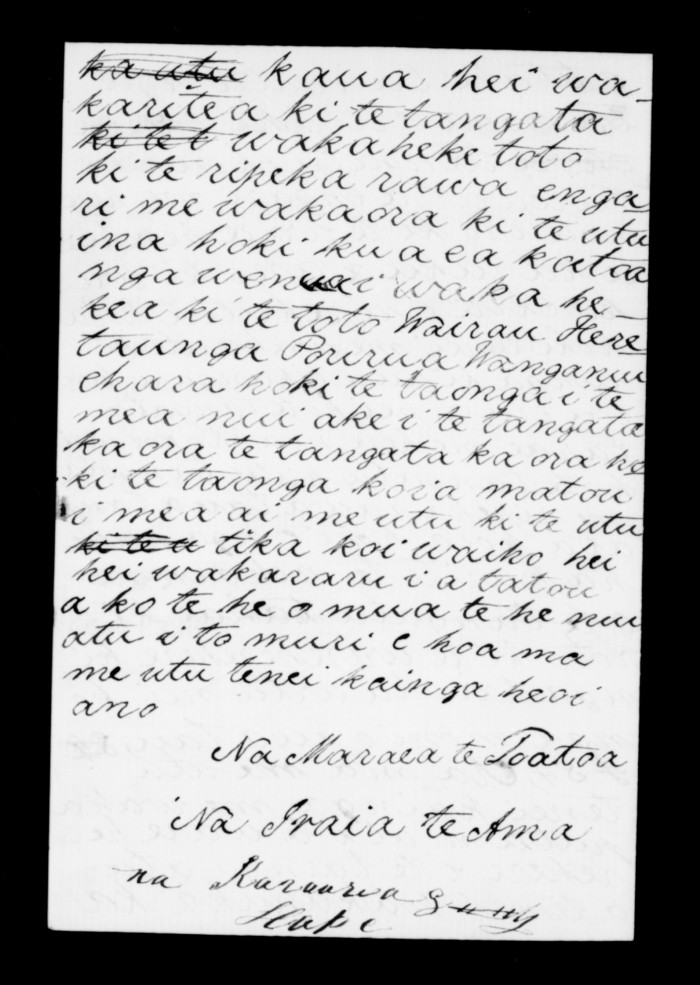 ka utu kaua hei wa-
karitea ki te tangata
ki te t wakaheke toto
ki te ripeka rawa enga
ri me wakaora ki te utu
ina hoki ku a ea katoa
nga wenua i waka he-
kea ki te toto Wairau Here
taunga Porirua Wanganui
ehara hoki te taonga i te
mea nui ake i te tangata
ka ora te tangata ka ora he
ki te taonga koia matou
i mea ai me utu ki te utu
ki te u tika koi waiho hei
hei wakararu i a tatou
a ko te he o mua te he nui
atu i to muri e hoa ma
me utu tenei kainga heoi
ano
Na Maraea te Toatoa
Na Iraia te Ama
na
Hapi